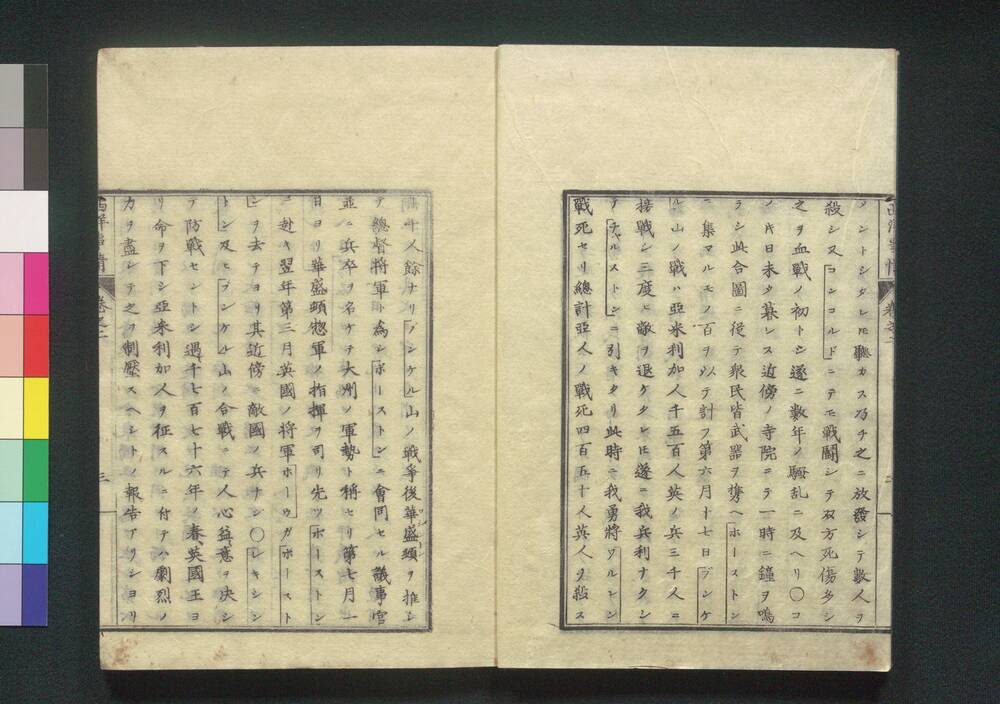 ントシタレ𪜈聽カス乃チ之ニ放發シテ數人ヲ
殺シヌコンコルドニテモ戰鬭シテ双方死傷多シ
之ヲ血戰ノ初トシ遂ニ數年ノ騷乱ニ及ヘリ〇コ
ノ日未タ暮レス近傍ノ寺院ニテ一時ニ鐘ヲ鳴
ラシ此合圖ニ從テ衆民皆武器ヲ携ヘホーストン
ニ集マルモノ百ヲ以テ計フ第六月十七日ブンケ
ル山ノ戰ハ亞米利加人千五百人英ノ兵三千人ニ
接戰シ三度ヒ敵ヲ退ケタレ𪜈遂ニ我兵利ナクシ
テチルストンニ引キタリ此時ニ我勇將ワルレン
戰死セリ總計亞人ノ戰死四百五十人英人ヲ殺ス
人餘ナリブンケル山ノ戰爭後華盛頓ヲ推シ
テ總督將軍ト為シホーストンニ會同セル議事官
並ニ兵卒ヲ名ケテ大州ノ軍勢ト稱セリ第七月一
日ヨリ華盛頓惣軍ノ指揮ヲ司リ先ツホーストン
ニ赴キ翌年第三月英國ノ將軍ホーウガホースト
ンヲ去テヨリ其近傍ニ敵國ノ兵ナシ〇レキシン
トン及ヒブンケル山ノ合戰ニテ人心益意ヲ決シ
テ防戰セントシ遇千七百七十六年ノ春英國王ヨ
リ命ヲ下シ亞米利加人ヲ征スルニ付テハ劇烈ノ
力ヲ盡シテ之ヲ制壓スヘシトノ報告アリシヨリ
卷之二
三